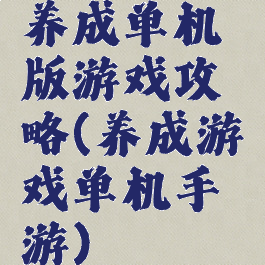 养成单机
版游戏攻
略(养成游
戏单机手
游)